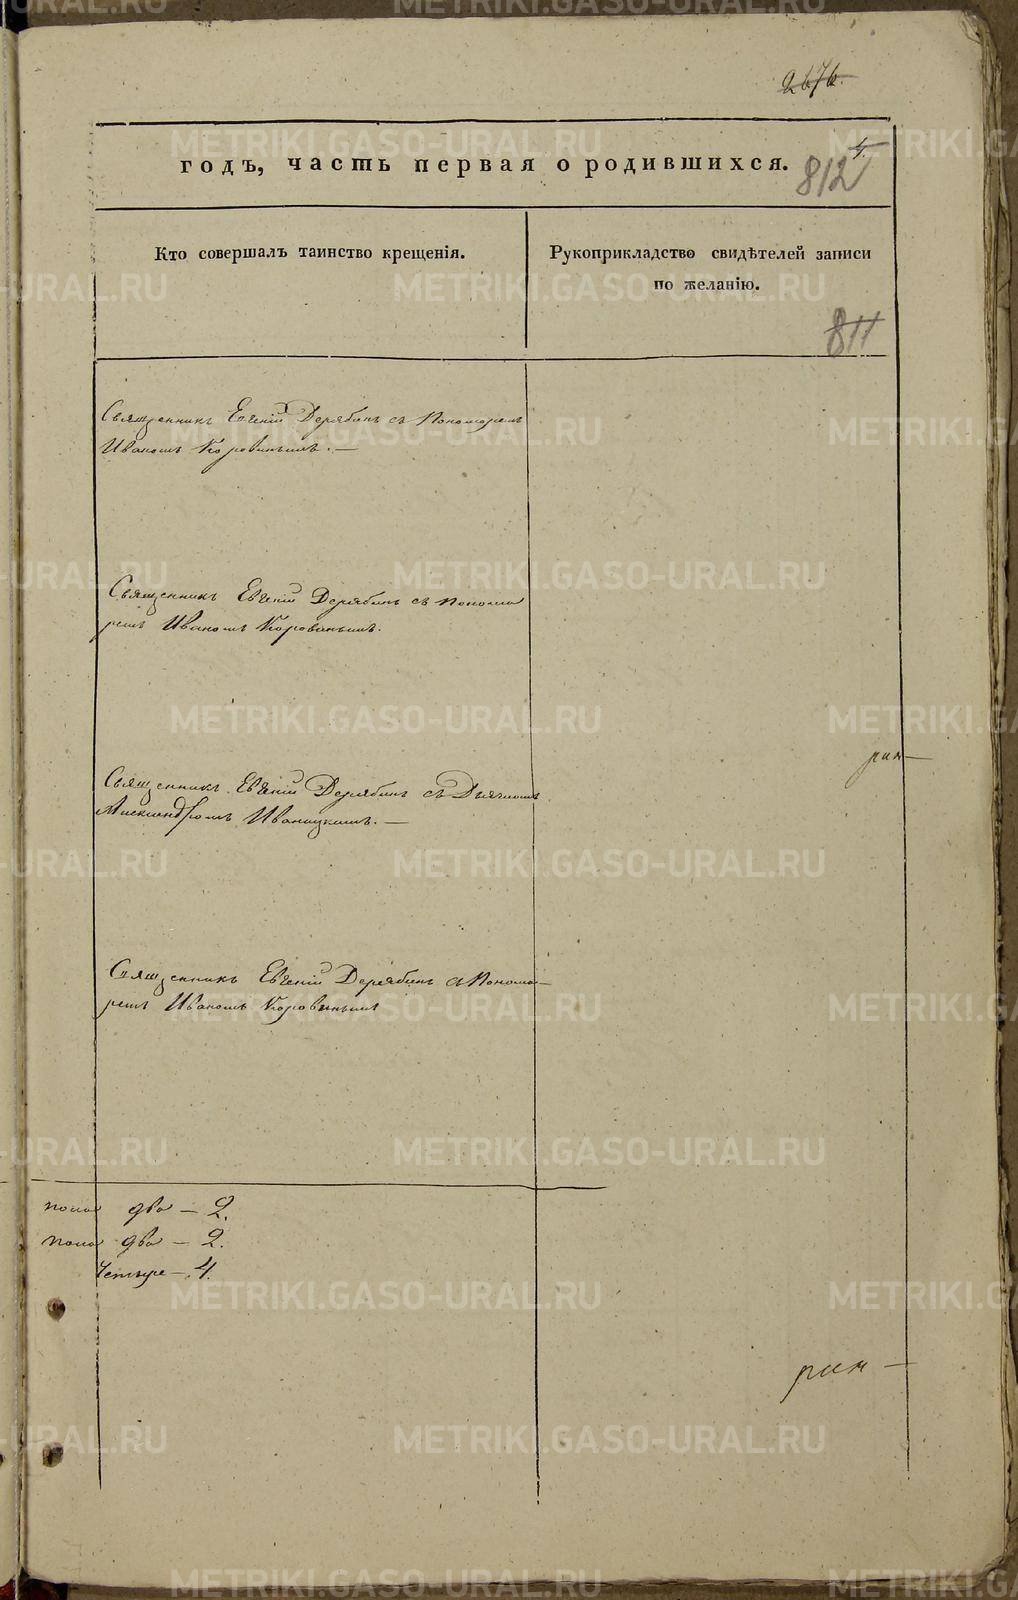 2676.
годъ, часть первая о родившихся.
4.
812
Кто совершалъ таинство крещенія.
Рукоприкладство свидѣтелей записи
по желанію.
811
Священникъ Евгеній Дерябинъ съ Пономаремъ
Иваномъ Коровинымъ. —
Священникъ Евгеній Дерябинъ съ понома
ремъ Иваномъ Коровинымъ.
рин —
Священникъ Евгеній Дерябинъ съ Дьячкомъ
Александромъ Иваницкимъ. —
Священникъ Евгеній Дерябинъ съ Понома-
ремъ Иваномъ Коровинымъ
пола два — 2.
пола два — 2.
Четыре — 4.
рин —
METRIKI.GASO-URAL.RU